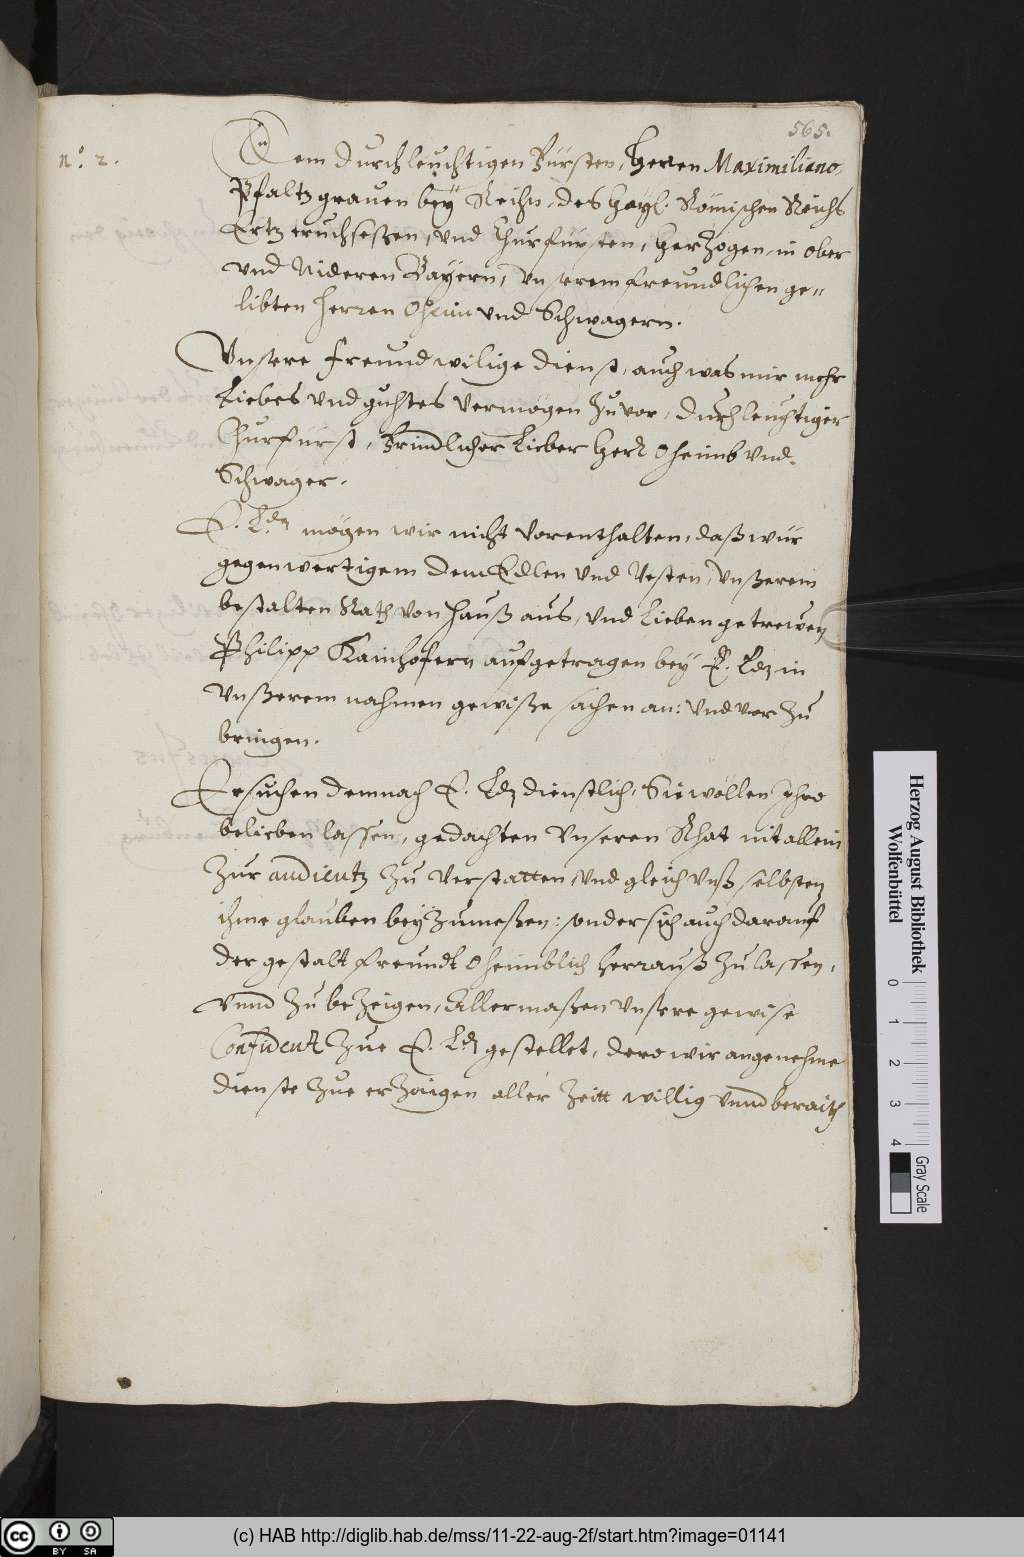 565.
n.º 2.
Dem durchleuchtigen Fürsten, Herren Maximiliano,
Pfaltzgrauen bey Rhein, des Hayl. Römischen Reichs
Ertztruchseßen, vnd Churfürsten, Herzogen in Ober
vnd Nideren Bayern, vnserem freundlichen ge„
libten Herren Oheim vnd Schwagern.
Vnsere freundwilige dienst, auch was mir mehr
Liebes vnd guhtes vermögen zuvor, durchleuchtiger
Churfürst, Freindlicher Lieber Herr Oheimb vnd
Schwager.
E. Ldn mögen wir nicht vorenthalten, daß wür
gegenwertigem dem Edlen vnd Vesten, vnßerem
bestalten Rath von Hauß aus, vnd Lieben getrewen
Philipp Hainhofern aufgetragen bey E. Ldn in
vnßerem nahmen gewiße sachen an: vnd vor zu
bringen.
Ersuchen demnach E. Ldn dienstlich, Sie wöllen Ihro
belieben lassen, gedachten vnseren Rhat nit allein
zur audientz zu verstatten, vnd gleich vnß selbsten
ihme glauben bey zumeßen: sonder sich auch darauf
der gestalt freundt Oheimblich herrauß zu lassen,
vnnd zu bezeigen, Allermaßen vnsere gewise
Confidentz zue E. Ldn gestellet, dero wir angenehme
dienste zue erzaigen aller Zeitt willig vnnd beraith
Herzog August Bibliothek
Wolfenbüttel
0 1 2 3 4
Gray Scale
cc BY SA
(c) HAB http://diglib.hab.de/mss/11-22-aug-2f/start.htm?image=01141